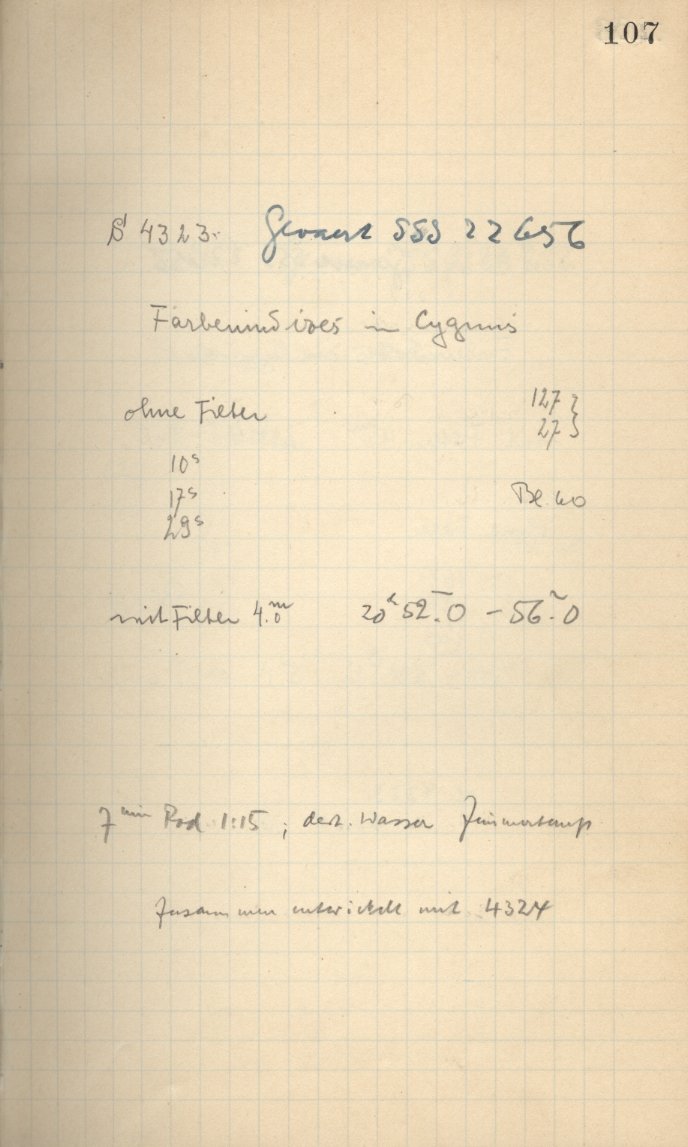 107
S 4323. Gevaert SSS 22656
Farbenindizes in Cygnus
ohne Filter 127 }
27 }
10ˢ
17ˢ
29ˢ
Bl. 60
mit Filter 4.ᵐ0 20ʰ 52.ᵐ0 – 56.ᵐ0
7ᵐⁱⁿ Rod 1:15 ; dest. Wasser Zimmertemp
Zusammen entwickelt mit 4324